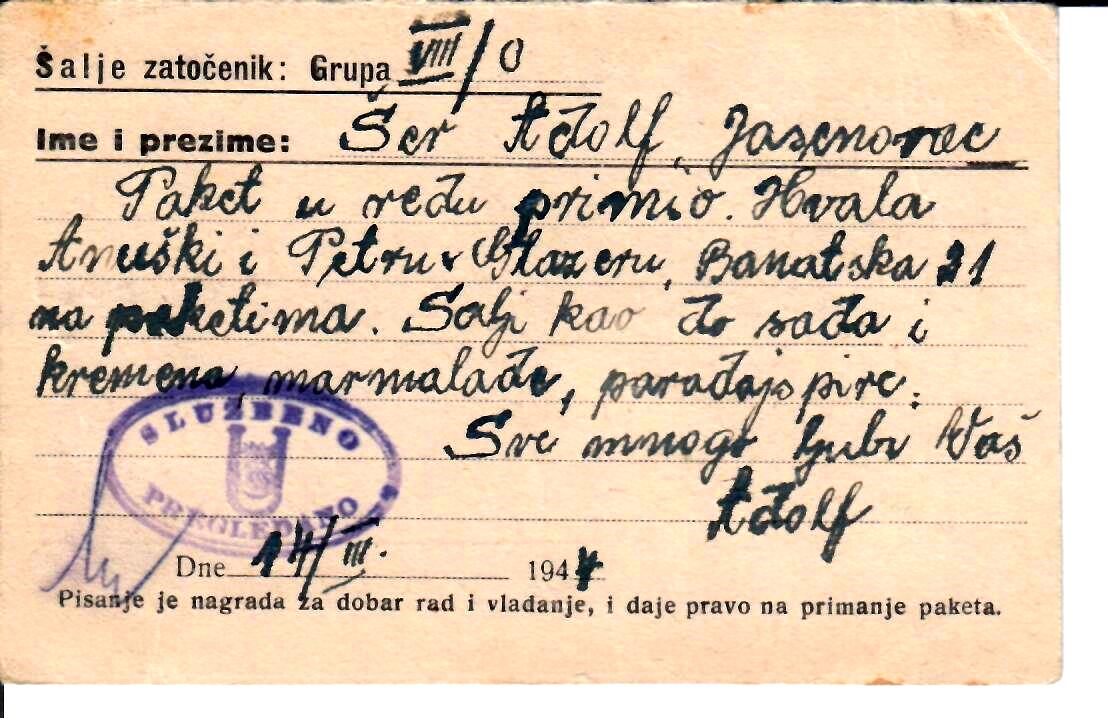 Šalje zatočenik: Grupa VIII/O
Ime i prezime: Šer Adolf, Jasenovac
Paket u redu primio. Hvala
Anuški i Petru Glazeru, Banatska 21
na paketima. Šalji kao do sada i
kremena, marmalade, paradajs pire.
Sve mnogo ljubi Vaš
Adolf
SLUŽBENO
U
PREGLEDANO
Dne 14/III. 1944
Pisanje je nagrada za dobar rad i vladanje, i daje pravo na primanje paketa.